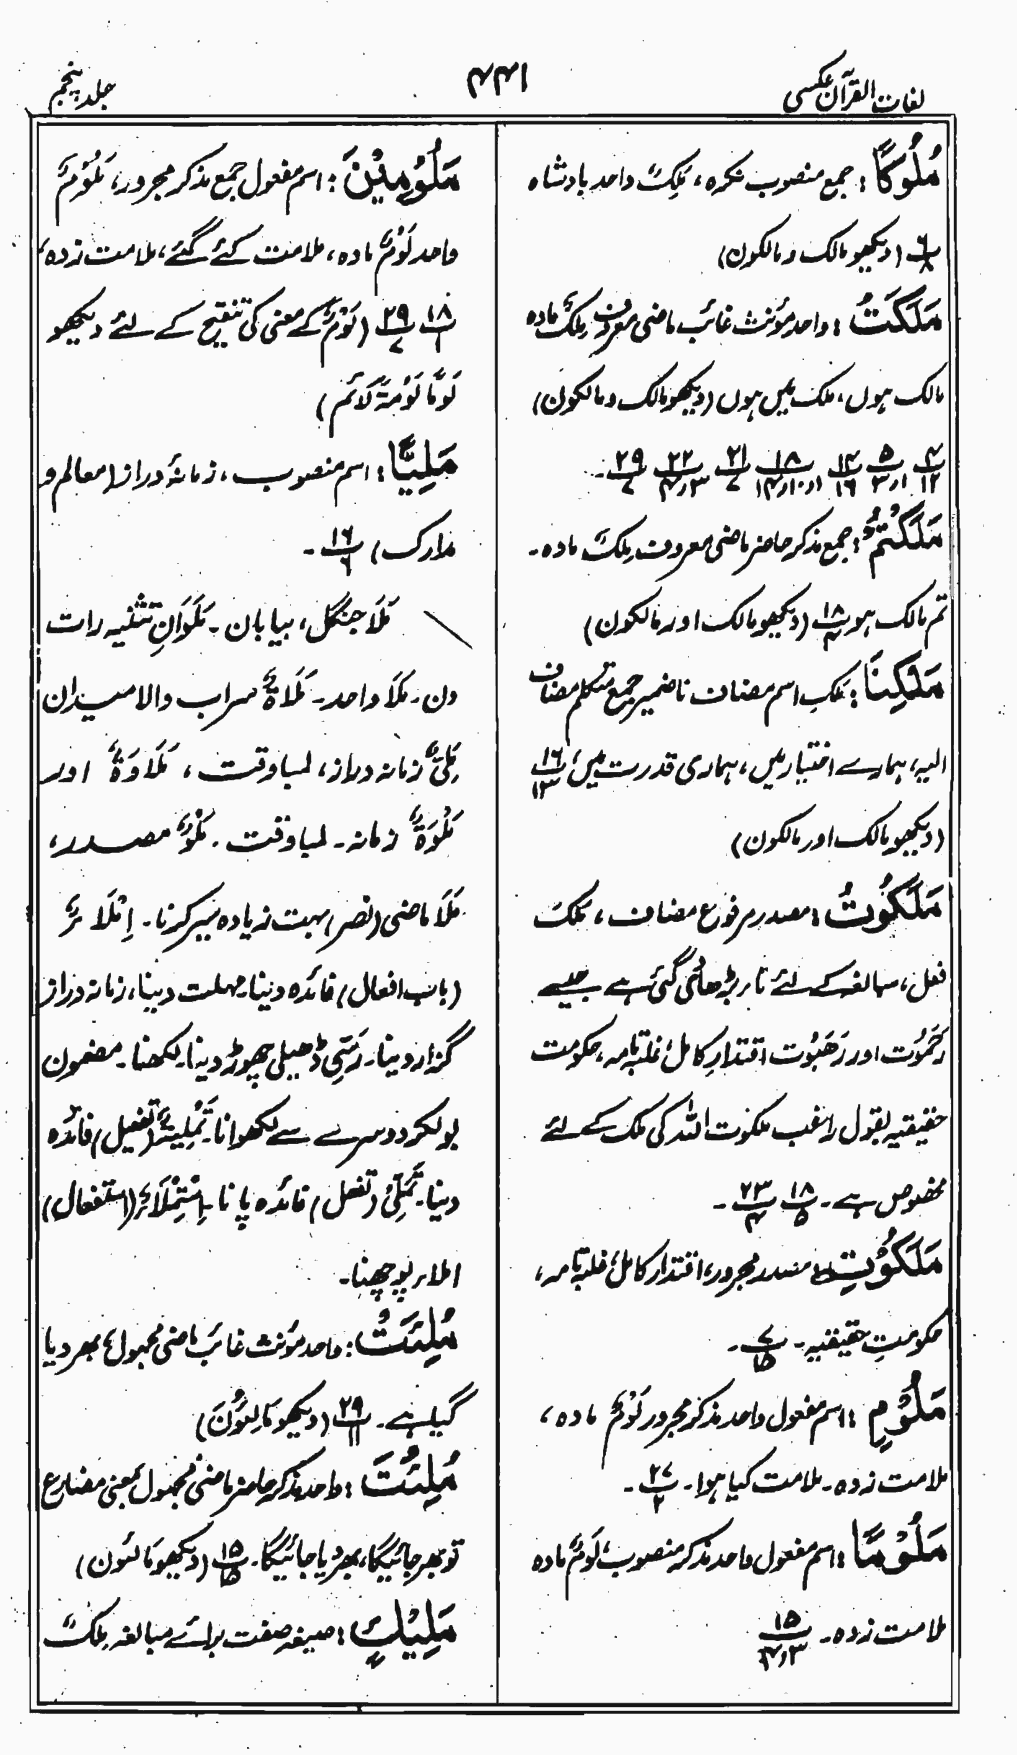 لغات القرآن عکسی
۴۴۱
جلد پنجم
مُلُوكًا : جمع منصوب نکرہ، مَلِکٌ واحد بادشاہ
پ۶/۸ (دیکھو مالک و مالکون)
مَلَكَتْ : واحد مؤنث غائب ماضی معروف مِلْکٌ مادہ
مالک ہوں، ملک میں ہوں (دیکھو مالک و مالکون)
پ۴/۱۲ پ۵/۱،۳ پ۱۴/۱۶ پ۱۸/۱،۱۰،۱۴ پ۲۱/۷ پ۲۲/۳،۴ پ۲۹/۷ ۔
مَلَكْتُمْ : جمع مذکر حاضر ماضی معروف مِلْکٌ مادہ۔
تم مالک ہو پ۱۸/۴ (دیکھو مالک اور مالکون)
مَلْكِنَا : مَلْکِ اسم مضاف نا ضمیر جمع متکلم مضاف
الیہ، ہمارے اختیار میں، ہماری قدرت میں، پ۱۶/۱۳
(دیکھو مالک اور مالکون)
مَلَكُوْتُ : مصدر مرفوع مضاف، مَلَکَ
فعل، مبالغہ کے لئے تا بڑھائی گئی ہے جیسے
رَحَمُوْت اور رَهَبُوْت اقتدارِ کامل، غلبۂ تامہ، حکومت
حقیقیہ بقول راغب ملکوت اللہ کی ملک کے لئے
مخصوص ہے۔ پ۱۸/۵ پ۲۳/۴ ۔
مَلَكُوْتِ : مصدر مجرور، اقتدار کامل، غلبہ تامہ،
حکومتِ حقیقیہ۔ پ۷/۱۵ ۔
مَلُوْمٍ : اسم مفعول واحد مذکر مجرور لَوْمٌ مادہ،
ملامت زدہ۔ ملامت کیا ہوا۔ پ۲۷/۲ ۔
مَلُوْمًا : اسم مفعول واحد مذکر منصوب، لَوْمٌ مادہ
ملامت زدہ۔ پ۱۵/۳،۴
مَلُوْمِيْنَ : اسم مفعول جمع مذکر مجرور، مَلُوْمٌ
واحد لَوْمٌ مادہ، ملامت کئے گئے، ملامت زدہ،
پ۱۸/۱ پ۲۹/۷ (لَوْمٌ کے معنی کی تنقیح کے لئے دیکھو
لَوَّامَا لَوْمَةَ لَائِمٍ)
مَلِيًّا : اسم منصوب، زمانۂ دراز (معالم و
مدارک) پ۱۶/۶ ۔
مَلَا جنگل، بیابان۔ مَلَوَانِ تثنیہ رات
دن۔ مَلَا واحد۔ مَلَاةٌ سراب والا میدان
مَلِيٌّ زمانہ دراز، لمبا وقت، مَلَاوَةٌ اور
مَلْوَةٌ زمانہ۔ لمبا وقت۔ مَلْوٌ مصدر،
مَلَا ماضی (نصر) بہت زیادہ سیر کرنا۔ اِمْلَاءٌ
(باب افعال) فائدہ دینا مہلت دینا، زمانہ دراز
گزار دینا۔ رَسّی ڈھیلی چھوڑ دینا۔ لکھنا۔ مضمون
بولکر دوسرے سے لکھوانا۔ تَمْلِيَةٌ (تفعیل) فائدہ
دینا۔ تَمَلِّيْ (تفعل) فائدہ پانا۔ اِسْتِمْلَاءٌ (استفعال)
املاء پوچھنا۔
مُلِئَتْ : واحد مؤنث غائب ماضی مجہول، بھر دیا
گیا ہے۔ پ۲۹/۱۱ (دیکھو مَالِئُوْنَ)
مُلِئْتَ : واحد مذکر حاضر ماضی مجہول بمعنی مضارع
تو بھر جائیگا، بھر دیا جائیگا۔ پ۱۵/۱۵ (دیکھو مالئون)
مَلِيْكٍ : صیغہ صفت برائے مبالغہ مِلْکٌ